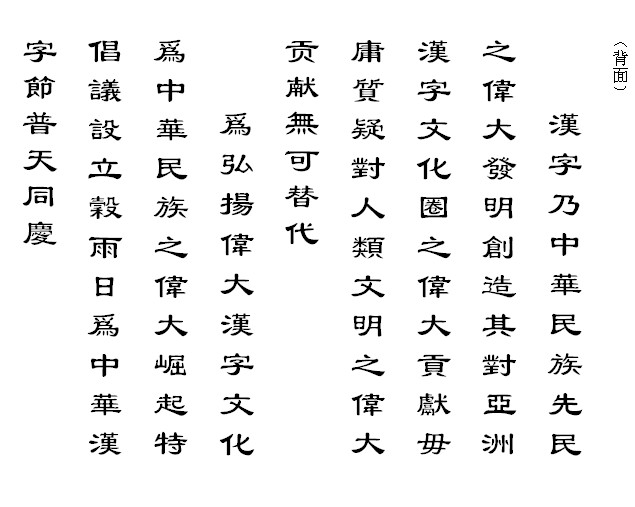 （背面）
漢字乃中華民族先民
之偉大發明創造其對亞洲
漢字文化圈之偉大貢獻毋
庸質疑對人類文明之偉大
贡献無可替代
爲弘揚偉大漢字文化
爲中華民族之偉大崛起特
倡議設立榖雨日爲中華漢
字節普天同慶